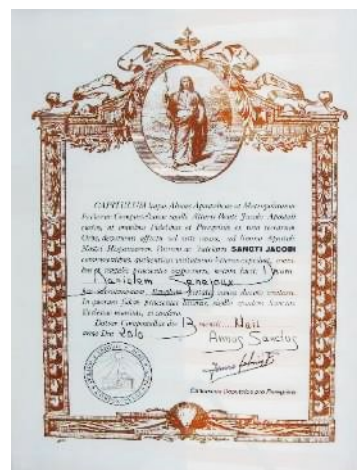 CAPITULUM hujus Almae Apostolicae et Metropolitanae
Ecclesiae Compostellanae sigilli Altaris Beati Jacobi Apostoli
custos, ut omnibus Fidelibus et Peregrinis ex toto terrarum
Orbe, devotionis affectu vel voti causa, ad limina Apostoli
Nostri Hispaniarum Patroni ac Tutelaris SANCTI JACOBI
convenientibus, authenticas visitationis litteras expediat, omni-
bus et singulis praesentes inspecturis, notum facit: Dnum
Danielem
hoc sacratissimum Templum pietatis causa devote visitasse.
In quorum fidem praesentes litteras, sigillo ejusdem Sanctae
Ecclesiae munitas, ei confero.
Datum Compostellae die 13 mensis Maii
anno Dni 2010 Annus Sanctus
Canonicus Deputatus pro Peregrinis